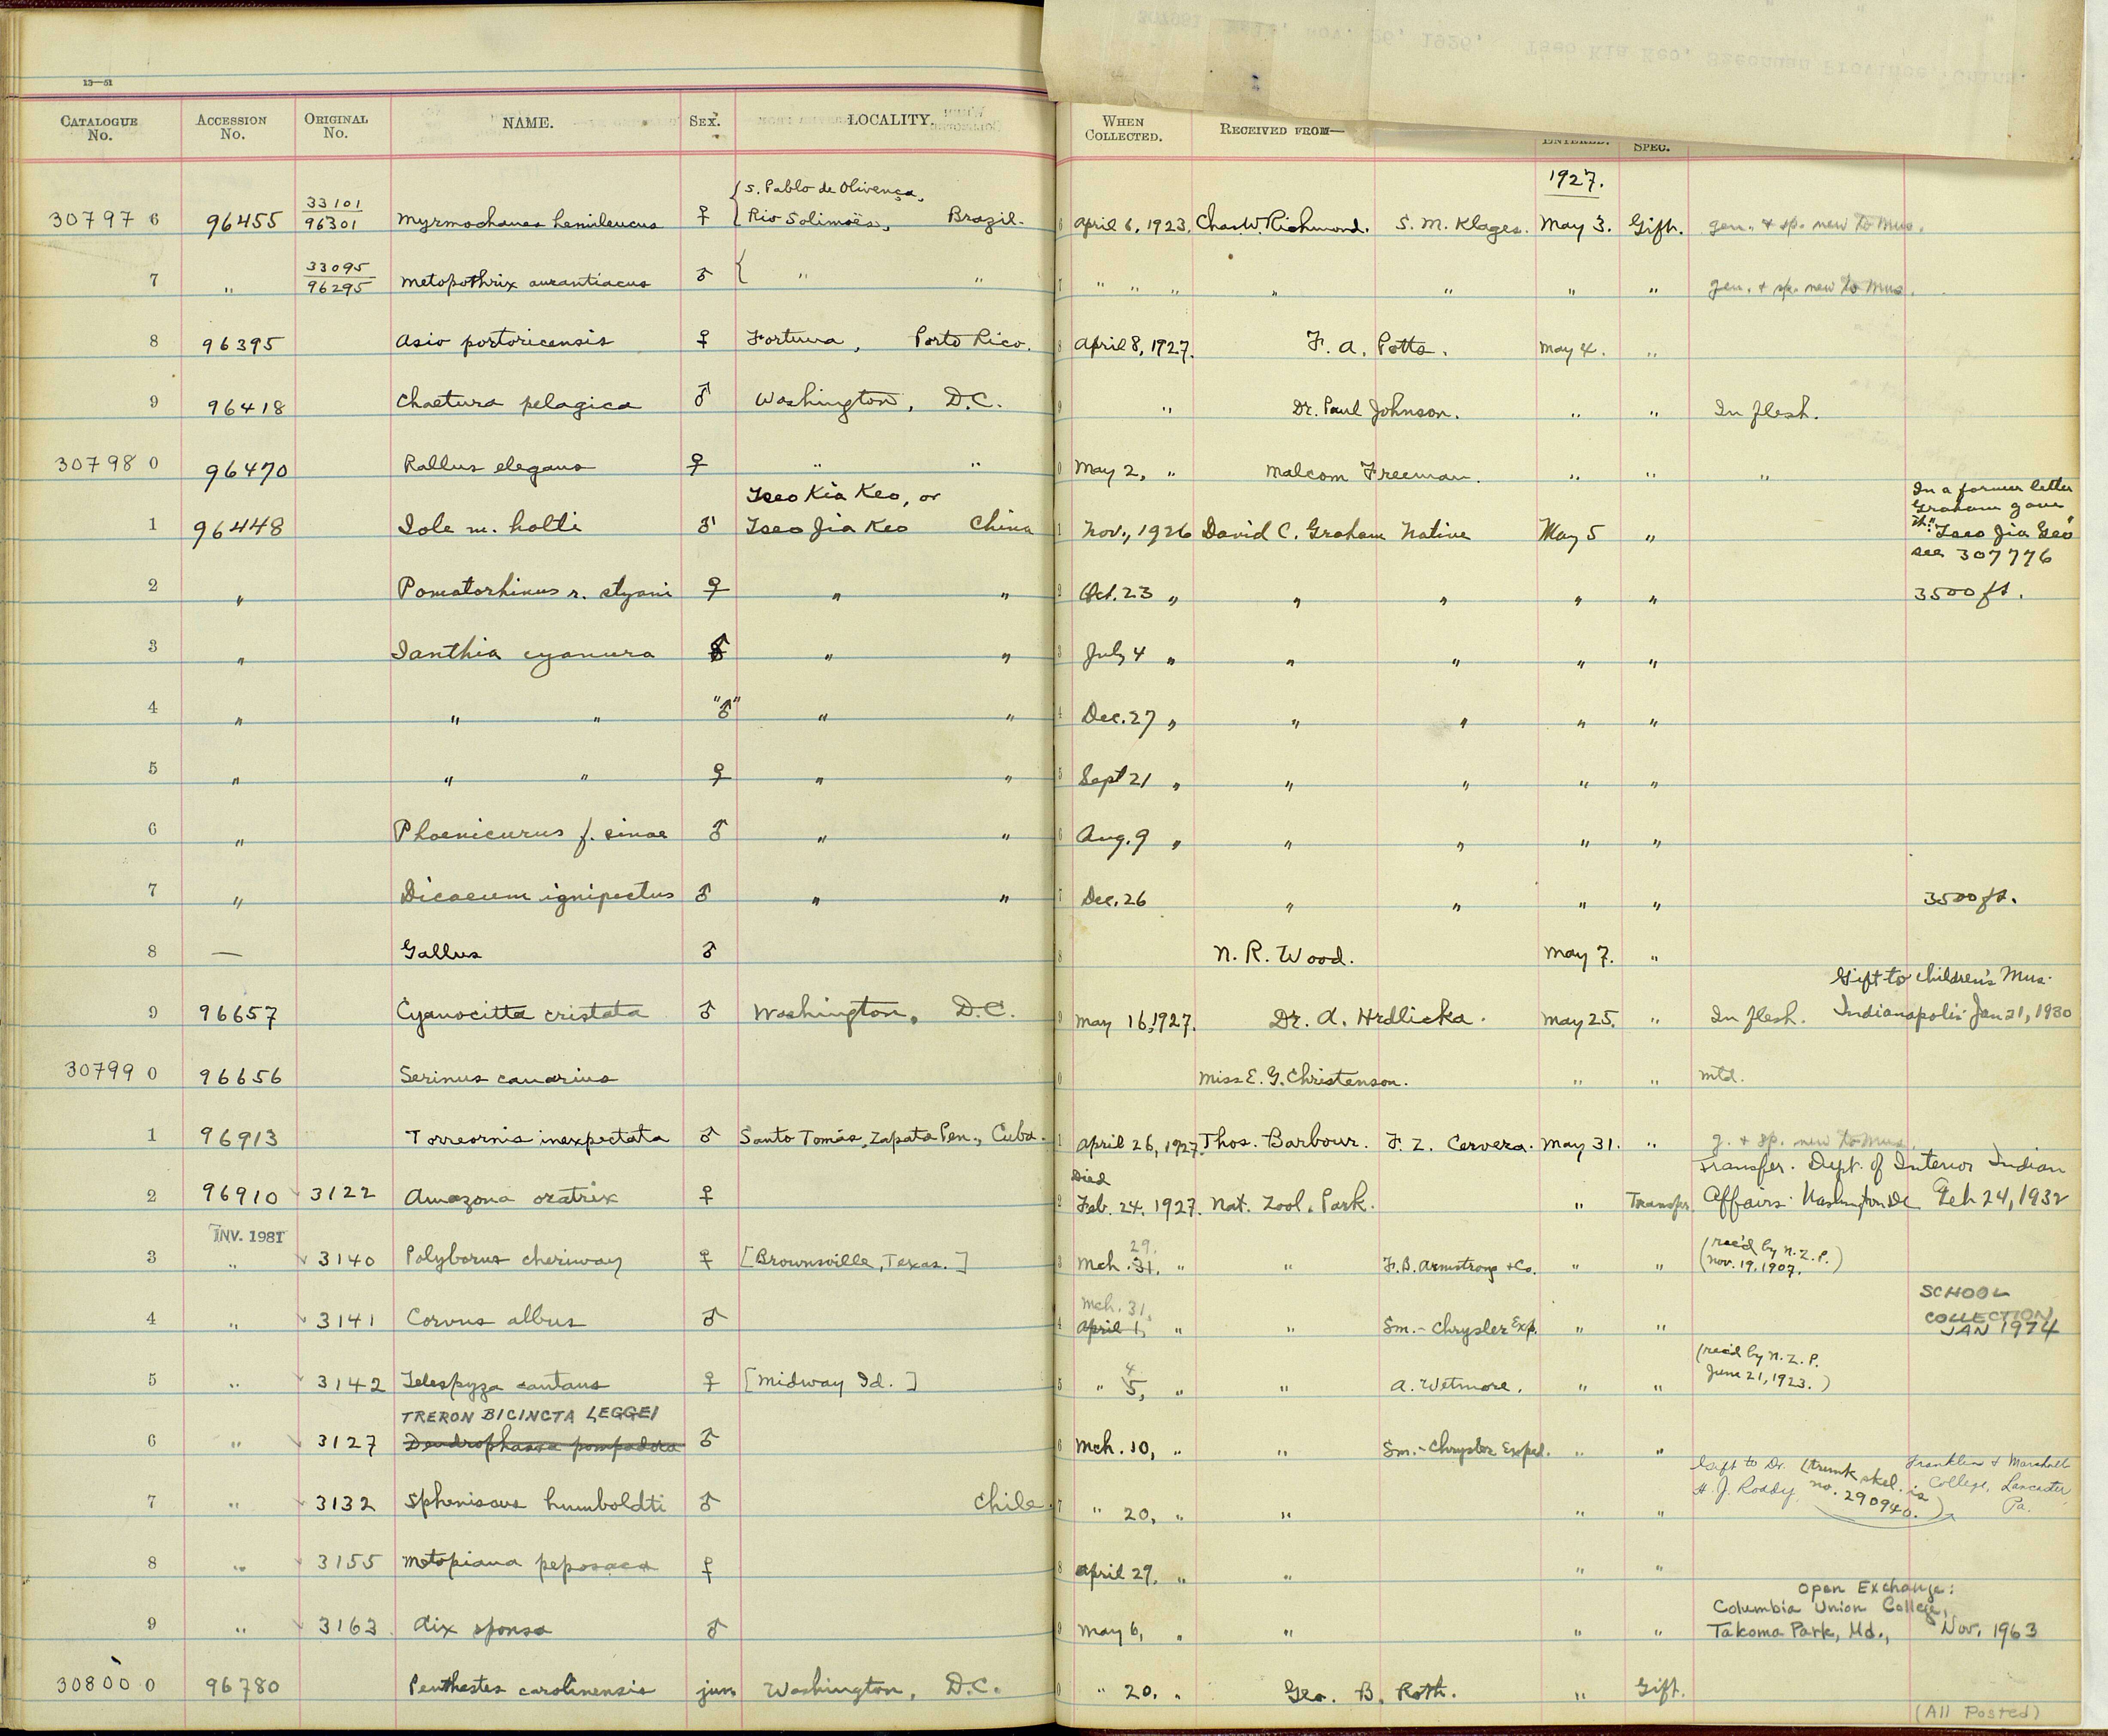 13—51
CATALOGUE No. ACCESSION No. ORIGINAL No. NAME. SEX. LOCALITY. WHEN COLLECTED. RECEIVED FROM— ENTERED. SPEC.
1927.
30797 6 96455 33101 / 96301 Myrmochanes hemileucus ♀ { S. Pablo de Olivença, Rio Solimoës, Brazil. 6 April 6, 1923, Chas. W. Richmond. S. M. Klages. May 3. Gift. gen. & sp. new to Mus.
7 " 33095 / 96295 Metopothrix aurantiacus ♂ { " " 7 " " " " " " " gen. & sp. new to Mus.
8 96395 Asio portoricensis ♀ Fortuna, Porto Rico. 8 April 8, 1927. F. A. Potts. May 4. "
9 96418 Chaetura pelagica ♂ Washington, D.C. 9 " Dr. Paul Johnson. " " In flesh.
30798 0 96470 Rallus elegans ♀ " " 0 May 2, " Malcom Freeman. " " "
1 96448 Iole m. holti ♂ Tseo Kia Keo, or Tseo Jia Keo China 1 Nov., 1926 David C. Graham Native May 5 " In a former letter Graham gave it "Tseo Jia Geo" see 307776
2 " Pomatorhinus r. styani ♀ " " 2 Oct. 23 " " " " " 3500 ft.
3 " Ianthia cyanura ♂ " " 3 July 4 " " " " "
4 " " " "♂" " " 4 Dec. 27 " " " " "
5 " " " ♀ " " 5 Sept 21 " " " " "
6 " Phoenicurus f. sinae ♂ " " 6 Aug. 9 " " " " "
7 " Dicaeum ignipectus ♂ " " 7 Dec. 26 " " " " 3500 ft.
8 — Gallus ♂ 8 N. R. Wood. May 7. "
9 96657 Cyanocitta cristata ♂ Washington, D.C. 9 May 16, 1927. Dr. A. Hrdlicka. May 25. " In flesh. Gift to Children's Mus. Indianapolis Jan 21, 1930
30799 0 96656 Serinus canarius 0 Miss E. G. Christenson. " " mtd.
1 96913 Torreornis inexpectata ♂ Santo Tomás, Zapata Pen., Cuba. 1 April 26, 1927. Thos. Barbour. F. Z. Cervera. May 31. " g. & sp. new to Mus.
2 96910 3122 Amazona oratrix ♀ 2 Died Feb. 24. 1927. Nat. Zool. Park. " Transfer Transfer. Dept. of Interior Indian Affairs Washington DC Feb 24, 1932
INV. 1981
3 " 3140 Polyborus cheriway ♀ [Brownsville, Texas.] 3 Mch. 31. 29. " " F. B. Armstrong & Co. " " (rec'd by N.Z.P. Nov. 19. 1907.)
4 " 3141 Corvus albus ♂ 4 Mch. 31. April 1, " " Sm.-Chrysler Exp. " " SCHOOL COLLECTION JAN 1974
5 " 3142 Telespyza cantans ♀ [Midway Id.] 5 " 4 5, " " A. Wetmore. " " (rec'd by N.Z.P. June 21, 1923.)
TRERON BICINCTA LEGGEI
6 " 3127 Dendrophassa pompadora ♂ 6 Mch. 10, " " Sm.-Chrysler Exped. " "
7 " 3132 Spheniscus humboldti ♂ Chile. 7 " 20, " " " " Gift to Dr. H. J. Roddy. (trunk skel. is no. 290940.) Franklin & Marshall College, Lancaster Pa.
8 " 3155 Metopiana peposaca ♀ 8 April 29. " " " "
9 " 3163 Aix sponsa ♂ 9 May 6, " " " " Open Exchange: Columbia Union College, Takoma Park, Md., Nov. 1963
30800 0 96780 Penthestes carolinensis juv. Washington, D.C. 0 " 20. " Geo. B. Roth. " Gift.
(All Posted)